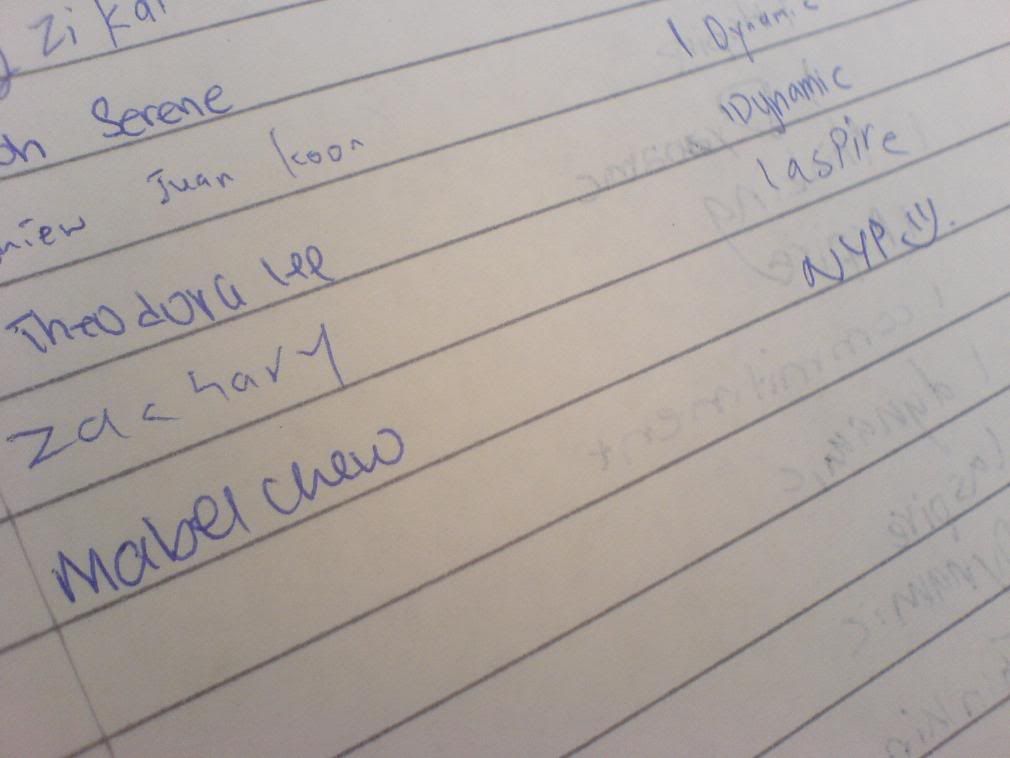 Zi Kai
Serene
niew Juan Koon 1 Dynamic
Theodora Lee 1Dynamic
Zachary 1 aspire
Mabel Chew NYP =).